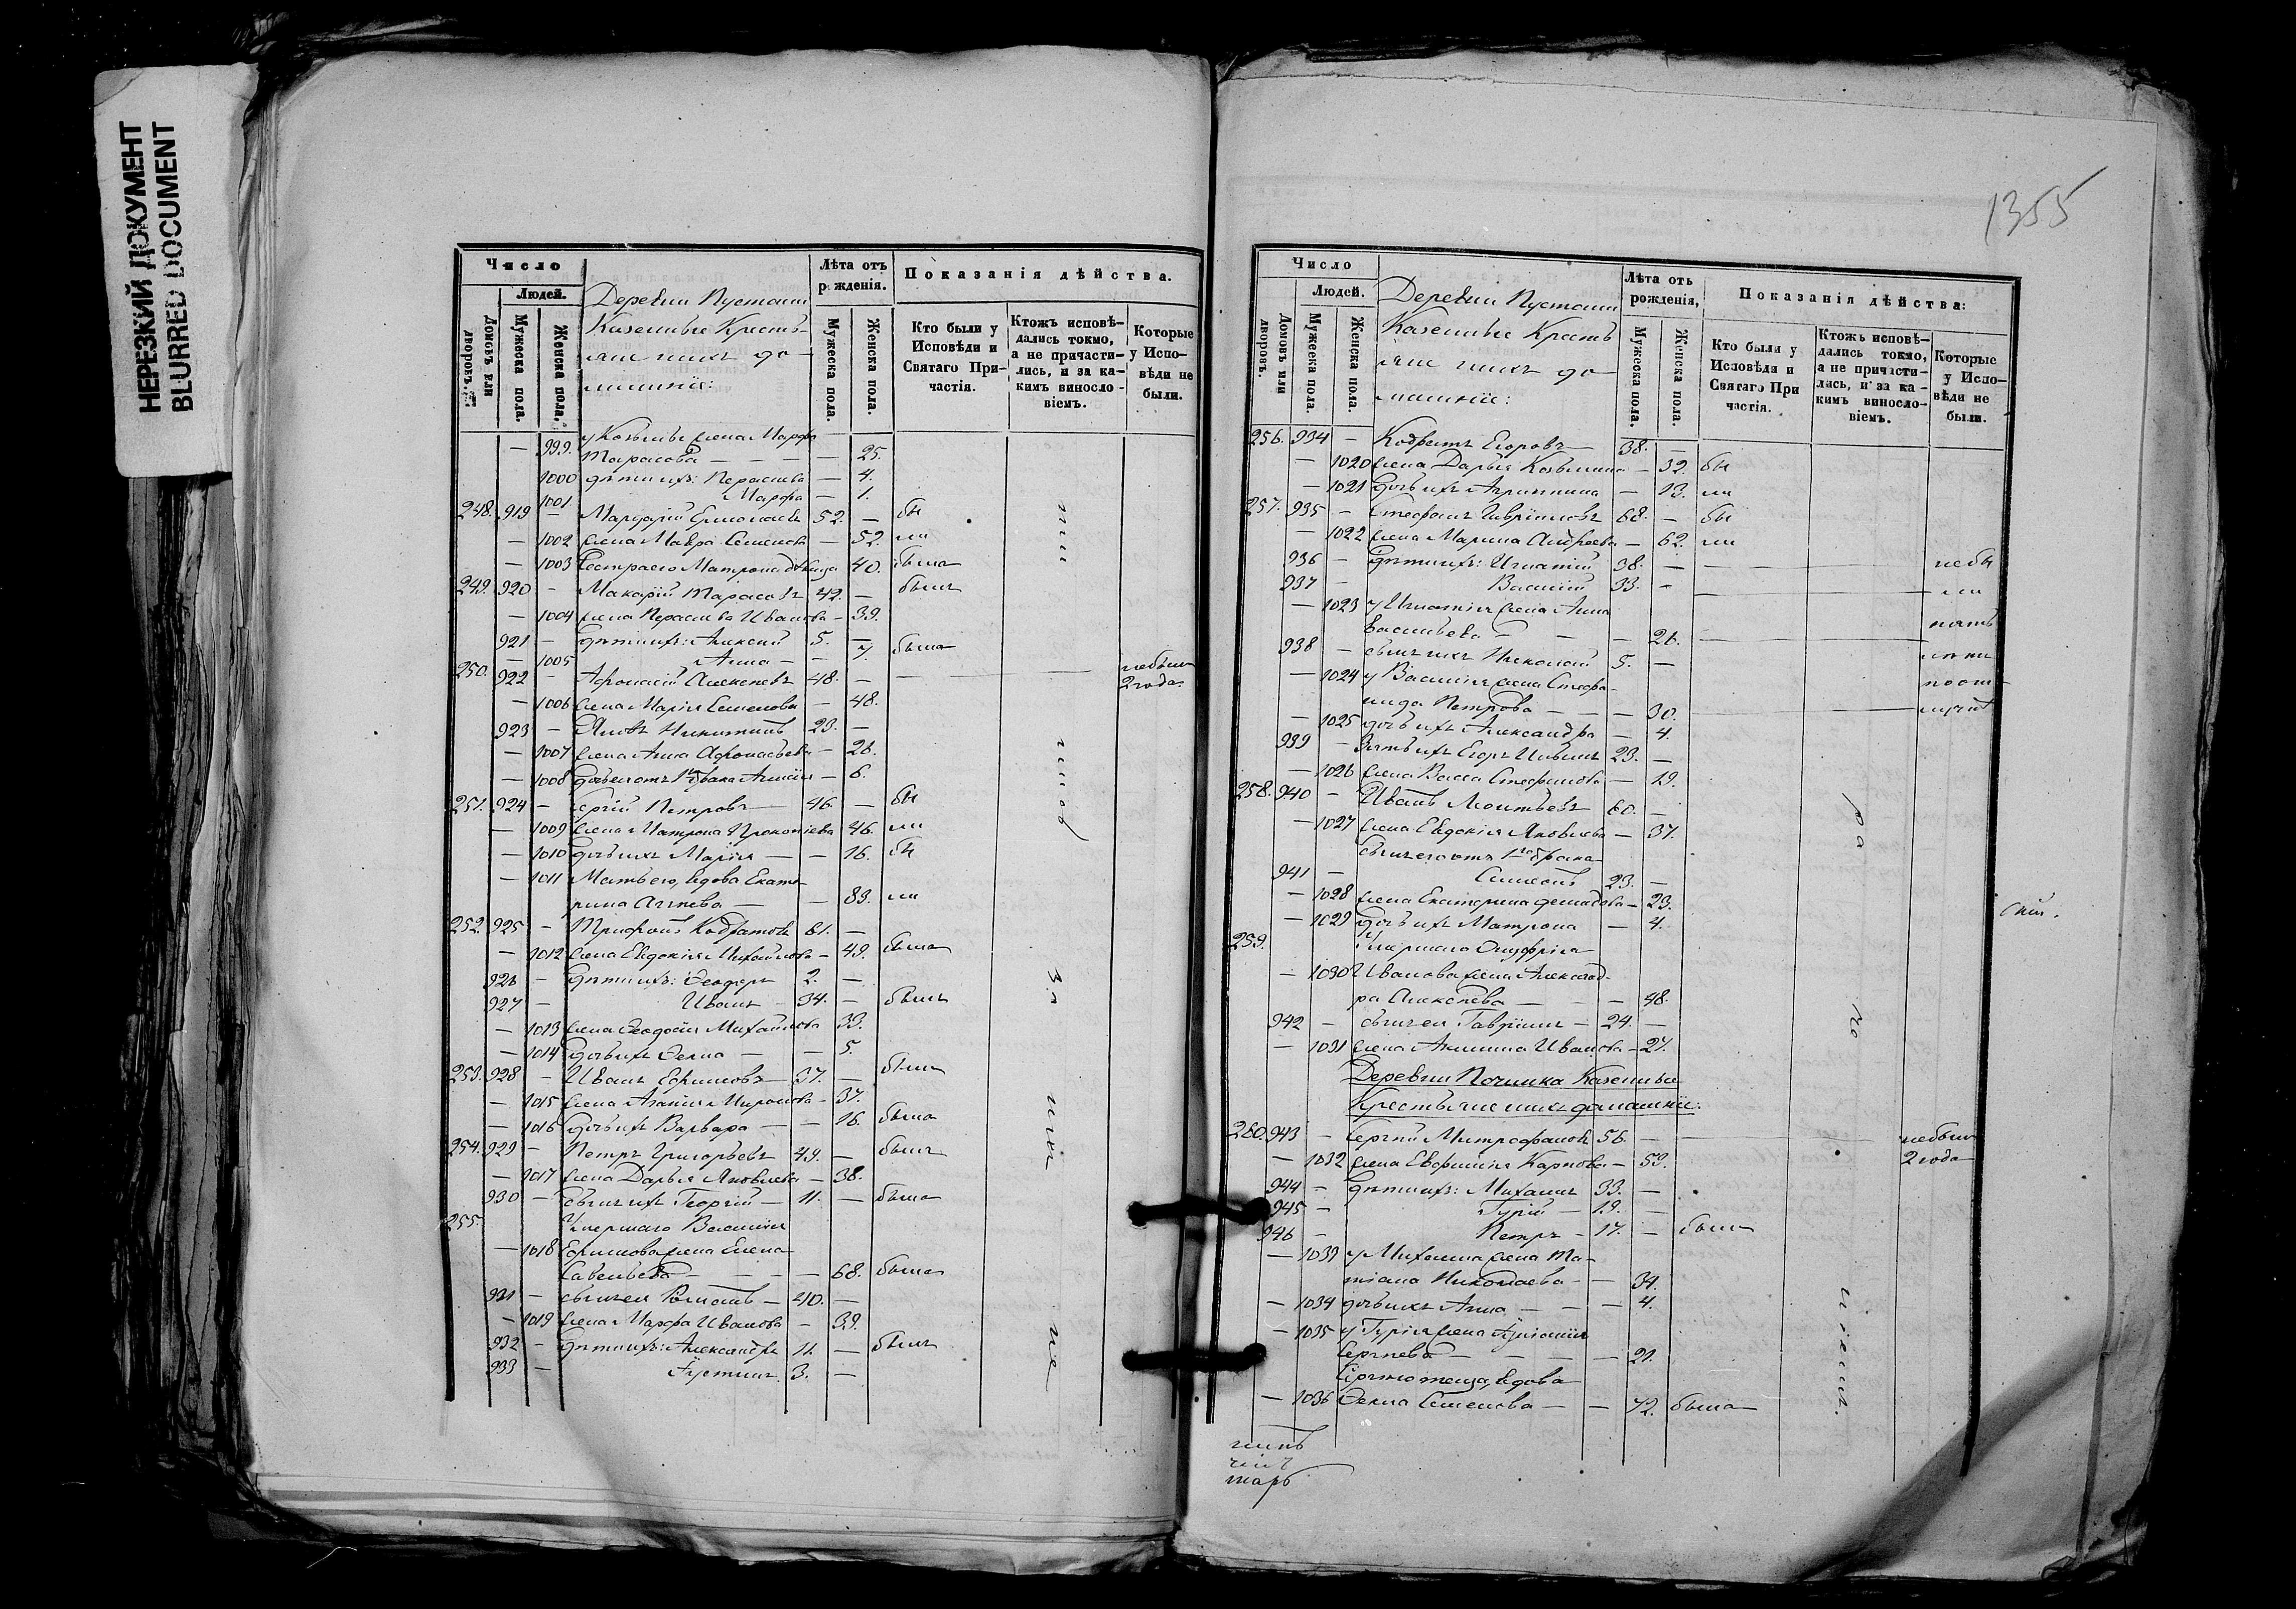 НЕРЕЗКИЙ ДОКУМЕНТ
BLURRED DOCUMENT
Число
Людей.
Домовъ или дворовъ.
Мужеска пола.
Женска пола.
Деревни Пустыни
Казенные Кресть-
яне и ихъ до-
машніе:
Лѣта отъ рожденія.
Мужеска пола.
Женска пола.
Показанія дѣйства.
Кто были у Исповѣди и Святаго При-частія.
Ктожъ исповѣ-дались токмо, а не причасти-лись, и за ка-кимъ виносло-віемъ.
Которые у Испо-вѣди не были.
— 999. у Козьмы жена Марфа
Тарасова — — — — 25.
1000 дѣти ихъ: Параскева — 4.
1001 Марфа — 1.
248. 919 — Мардарій Ермолаевъ 52. — бы
— 1002 жена Мавра Семенова — 52. ли
— 1003 Сестра его Матрона дѣвица 40. была
249. 920 — Макарій Тарасовъ 42. — былъ
— 1004 жена Параскева Иванова — 39.
921 — дѣти ихъ: Алексѣй 5. —
— 1005 Анна — — 7. была
250. 922 — Афонасій Алексѣевъ 48. — — — небылъ 2 года
— 1006 жена Марія Семенова — 48.
923 — Зять Никитинъ 23. —
— 1007 жена Анна Афонасьева — 26.
— 1008 дочь его отъ 1го брака — 6.
251. 924 — Сергій Петровъ — 46. — бы
— 1009 жена Матрона Прокопіева 46. ли
— 1010 дочь ихъ Марія — — 16. бы
— 1011 Мать его, вдова Екате-
рина Агѣева — — 83. ли
252. 925 — Трифонъ Кодратовъ 61. —
— 1012 жена Евдокія Михайлова — 49. была
926 — дѣти ихъ: Ѳеодоръ 2. —
927 — Иванъ 34. — былъ
— 1013 жена Ѳеодосія Михайлова 33.
— 1014 дочь ихъ Ѳекла — — 5.
253. 928 — Иванъ Ефимовъ — 37. — были
— 1015 жена Агапія Миронова — 37.
— 1016 дочь ихъ Варвара — — 16. была
254. 929 — Петръ Григорьевъ 49. — былъ
— 1017 жена Дарья Яковлева — 38.
930 — сынъ ихъ Георгій — 11. — была
255. Умершаго Василія
— 1018 Ефимова жена Елена
Савельева — — — — 68. была
931 — сынъ ея Романъ — 40. —
— 1019 жена Марфа Иванова — 39.
932 — дѣти ихъ: Александръ 11. — былъ
933 — Іустинъ. 3. —
1355
Число
Людей.
Домовъ или дворовъ.
Мужеска пола.
Женска пола.
Деревни Пустыни
Казенные Кресть
яне и ихъ до-
машніе:
Лѣта отъ рожденія,
Мужеска пола.
Женска пола.
Показанія дѣйства:
Кто были у Исповѣди и Святаго При частія.
Ктожъ исповѣ-дались токмо, а не причасти-лись, и за ка-кимъ виносло-віемъ.
Которые у Испо-вѣди не были.
256. 934 — Кодратъ Егоровъ — 38. —
— 1020 жена Дарья Козьмина — 32. бы
— 1021 дочь ихъ Агриппина — 13. ли
257. 935 — Стефанъ Гавриловъ 68. — бы
— 1022 жена Марина Андреева — 62. ли
936 — дѣти ихъ: Игнатій 38. — — — небы
937 — Василій 33. — — — ли
— 1023 у Игнатія жена Анна
Васильева — — — 26. — — пять
938 — сынъ ихъ Николай 5. —
— 1024 у Василія жена Стефа-
нида Петрова — — — 30.
— 1025 дочь ихъ Александра — 4.
939 — Зять ихъ Егоръ 23. —
— 1026 жена Васса Стефанова — 19.
258. 940 — Иванъ Леонтьевъ 60. —
— 1027 жена Евдокія Яковлева — 37.
сынъ его отъ 1го брака
941 — Симеонъ 23. —
— 1028 жена Екатерина — 23.
— 1029 дочь ихъ Матрона — 4.
259. Умершаго Онуфрія
— 1030 Иванова жена Александ-
ра Алексѣева — — — 48.
942 — сынъ ея Гавріилъ — 24. —
— 1031 жена Акилина Иванова — 27.
Деревни Починка Казенные
Крестьяне и ихъ домашніе:
260. 943 — Сергій Митрофановъ 56. — — — небылъ
— 1032 жена Евфимія Карпова — 53. 2 года
944 — дѣти ихъ: Михаилъ 33. —
945 — Гурій — 19. —
946 — Петръ — 17. — были
— 1033 у Михаила жена Та-
тіана Николаева — — 34.
— 1034 дочь ихъ Анна — — — 4.
— 1035 у Гурія жена Іуліанія
Сергѣева — — — — 21.
Сергію теща, вдова
— 1036 Ѳекла Семенова — — 72. была